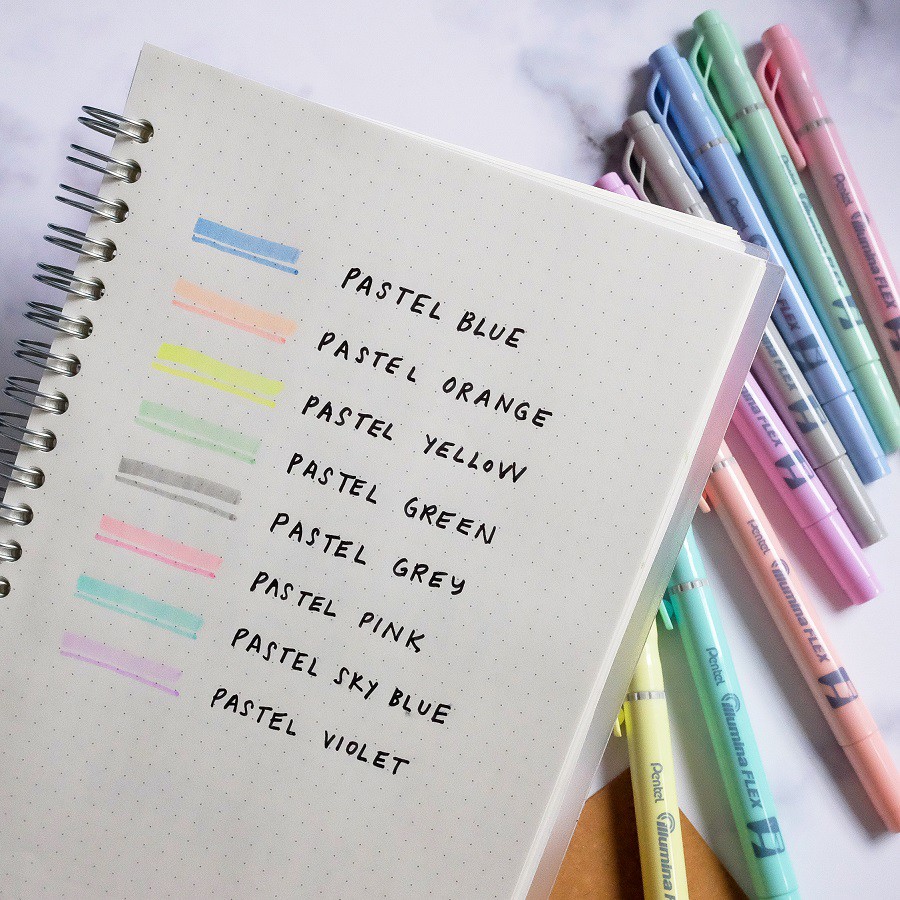 PASTEL BLUE
PASTEL ORANGE
PASTEL YELLOW
PASTEL GREEN
PASTEL GREY
PASTEL PINK
PASTEL SKY BLUE
PASTEL VIOLET
Pentel illumina FLEX
Pentel illumina FLEX
Pentel illumina FLEX
Pentel illumina FLEX
Pentel illumina
FLEX